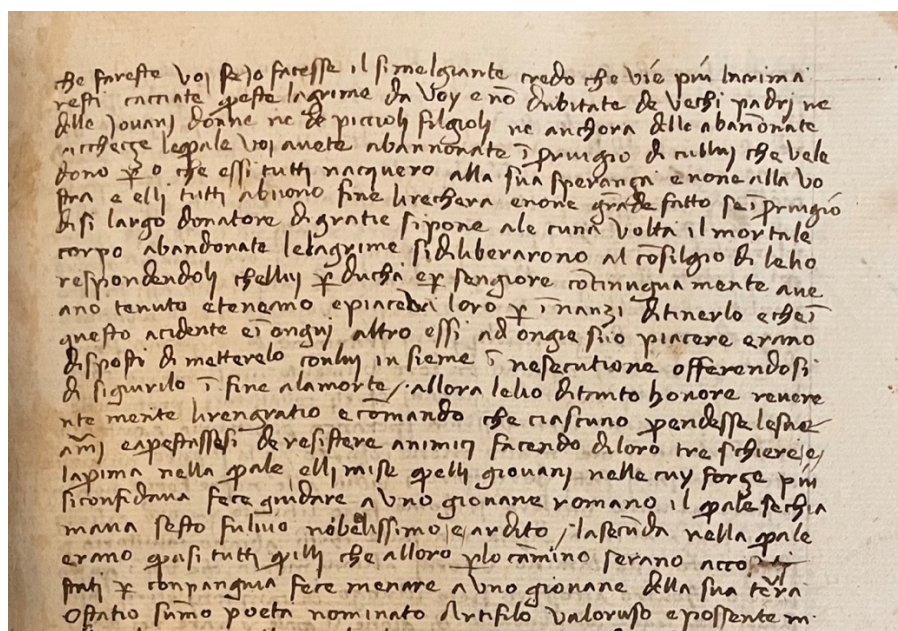 che fareste voj se jo facesse il simelgiante credo che vie più lacrima
resti cacciate q̄este lagrime da voy e nō dubitate de vechi padrj ne
delle jouanj donne ne de piccioli filgioli ne anchora delle abannonate
ricchecze leq̄ale voj auete abannonate ī ꝑruigio di culluj che vele
dono ꝑ o che essi tutti nacquero alla sua speranҫa e none alla vo
stra e ellj tutti abiono fine li recherà e none grāde fatto se ī ꝑruigio
di si largo donatore di gratie si pone ale cuna volta il mortale
corpo abandonate le lagrime si diliberarono al cōsilgio di lelio
respondendoli chelluj ꝑ ducha e ꝑ sengiore cōtinugua mente aue
ano tenuto e teneano e piaceua loro ꝑ īnanzi di tinerlo e che ī
questo acidente e ī ongnj altro essi ad ongie suo piacere erano
disposti di metterelo conluj in sieme ī nesecutione offerendosi
di siguirilo ī fine alamorte / allora lelio di tanto honore reuere
nte mente li rengratio e cōmando che ciascuno ꝑendesse le sue
armj e apestassesi de resistere animicj facendo di loro tre schiere / e /
la pima nella q̄ale ellj mise q̄elli giouanj nelle cuy forҫe più
si confidaua fece guidare a uno giouane romano il q̄ale se chia
maua sesto fuluio nobelissimo / e ardito / la secūda nella q̄ale
erano q̄asi tutti q̄illi che alloro ꝑ lo camino serano acco
stati ꝑ conpangnia fece menare a uno giouane della sua terra
Ostatio sūmo poeta nominato Artifilo valoruso e possente m